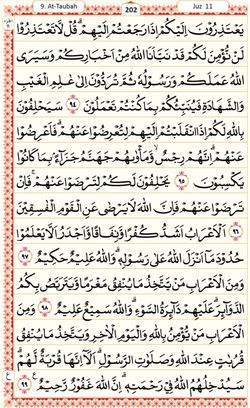 9. At-Taubah 202 Juz 11
يَعْتَذِرُوْنَ اِلَيْكُمْ اِذَا رَجَعْتُمْ اِلَيْهِمْ ۗ قُلْ لَّا تَعْتَذِرُوْا
لَنْ نُّؤْمِنَ لَكُمْ قَدْ نَبَّاَنَا اللّٰهُ مِنْ اَخْبَارِكُمْ وَسَيَرَى
اللّٰهُ عَمَلَكُمْ وَرَسُوْلُهٗ ثُمَّ تُرَدُّوْنَ اِلٰى عٰلِمِ الْغَيْبِ
وَالشَّهَادَةِ فَيُنَبِّئُكُمْ بِمَا كُنْتُمْ تَعْمَلُوْنَ ٩٤ سَيَحْلِفُوْنَ
بِاللّٰهِ لَكُمْ اِذَا انْقَلَبْتُمْ اِلَيْهِمْ لِتُعْرِضُوْا عَنْهُمْ ۗ فَاَعْرِضُوْا
عَنْهُمْ ۗ اِنَّهُمْ رِجْسٌ ۙ وَّمَأْوٰىهُمْ جَهَنَّمُ جَزَاۤءً ۢبِمَا كَانُوْا
يَكْسِبُوْنَ ٩٥ يَحْلِفُوْنَ لَكُمْ لِتَرْضَوْا عَنْهُمْ ۚ فَاِنْ
تَرْضَوْا عَنْهُمْ فَاِنَّ اللّٰهَ لَا يَرْضٰى عَنِ الْقَوْمِ الْفٰسِقِيْنَ
٩٦ اَلْاَعْرَابُ اَشَدُّ كُفْرًا وَّنِفَاقًا وَّاَجْدَرُ اَلَّا يَعْلَمُوْا
حُدُوْدَ مَآ اَنْزَلَ اللّٰهُ عَلٰى رَسُوْلِهٖ ۗ وَاللّٰهُ عَلِيْمٌ حَكِيْمٌ ٩٧
وَمِنَ الْاَعْرَابِ مَنْ يَّتَّخِذُ مَا يُنْفِقُ مَغْرَمًا وَّيَتَرَبَّصُ بِكُمُ
الدَّوَاۤىِٕرَ ۗ عَلَيْهِمْ دَاۤىِٕرَةُ السَّوْءِ ۗ وَاللّٰهُ سَمِيْعٌ عَلِيْمٌ ٩٨ وَمِنَ
الْاَعْرَابِ مَنْ يُّؤْمِنُ بِاللّٰهِ وَالْيَوْمِ الْاٰخِرِ وَيَتَّخِذُ مَا يُنْفِقُ
قُرُبٰتٍ عِنْدَ اللّٰهِ وَصَلَوٰتِ الرَّسُوْلِ ۗ اَلَآ اِنَّهَا قُرْبَةٌ لَّهُمْ ۗ
سَيُدْخِلُهُمُ اللّٰهُ فِيْ رَحْمَتِهٖ ۗ اِنَّ اللّٰهَ غَفُوْرٌ رَّحِيْمٌ ٩٩ ع